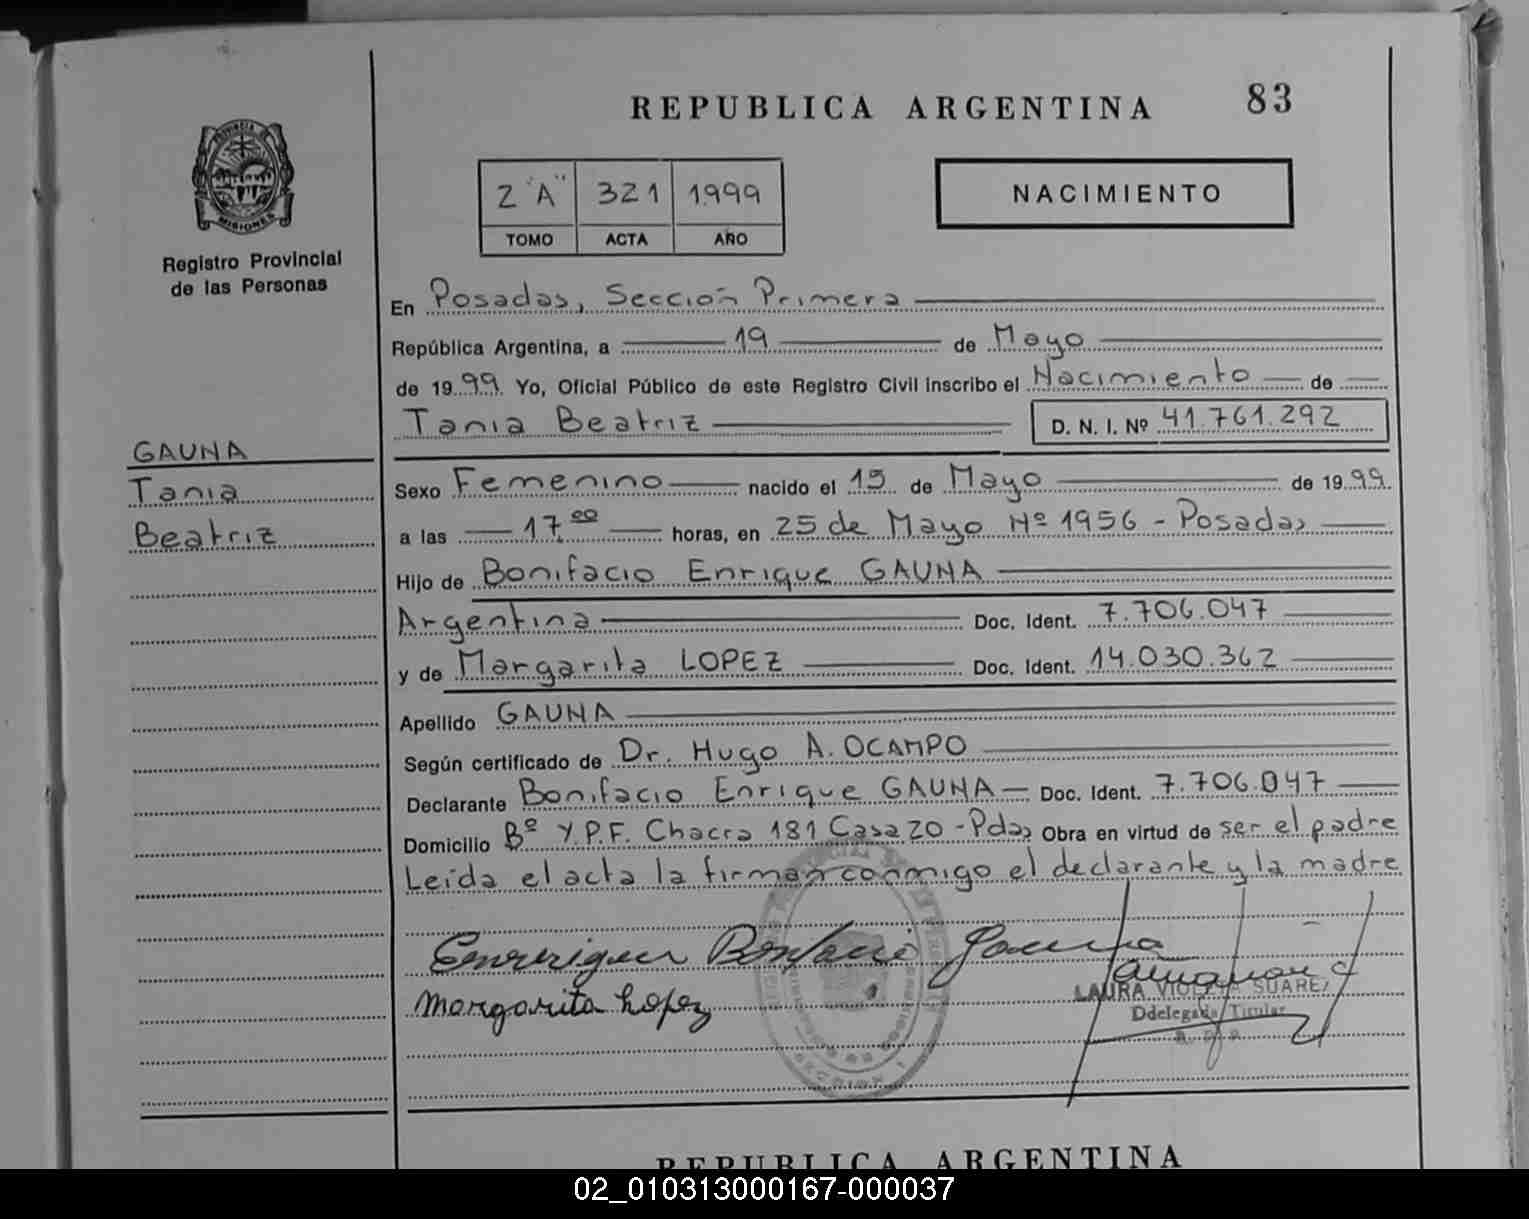 REPUBLICA ARGENTINA
83
PROVINCIA DE
MISIONES
Registro Provincial
de las Personas
2 "A" 321 1999
TOMO ACTA AÑO
NACIMIENTO
En Posadas, Sección Primera
República Argentina, a 19 de Mayo
de 19 99 Yo, Oficial Público de este Registro Civil inscribo el Nacimiento de
Tania Beatriz D. N. I. Nº 41.761.292
GAUNA
Tania
Beatriz
Sexo Femenino nacido el 15 de Mayo de 19 99
a las 17 00 horas, en 25 de Mayo Nº 1956 - Posadas
Hijo de Bonifacio Enrique GAUNA
Argentina Doc. Ident. 7.706.047
y de Margarita LOPEZ Doc. Ident. 14.030.362
Apellido GAUNA
Según certificado de Dr. Hugo A. OCAMPO
Declarante Bonifacio Enrique GAUNA Doc. Ident. 7.706.047
Domicilio Bº Y.P.F. Chacra 181 Casa 20 - Pdas Obra en virtud de ser el padre
Leída el acta la firman conmigo el declarante y la madre
Margarita Lopez
LAURA VIOLETA SUAREZ
Ddelegada Titular
REPUBLICA ARGENTINA
02_010313000167-000037